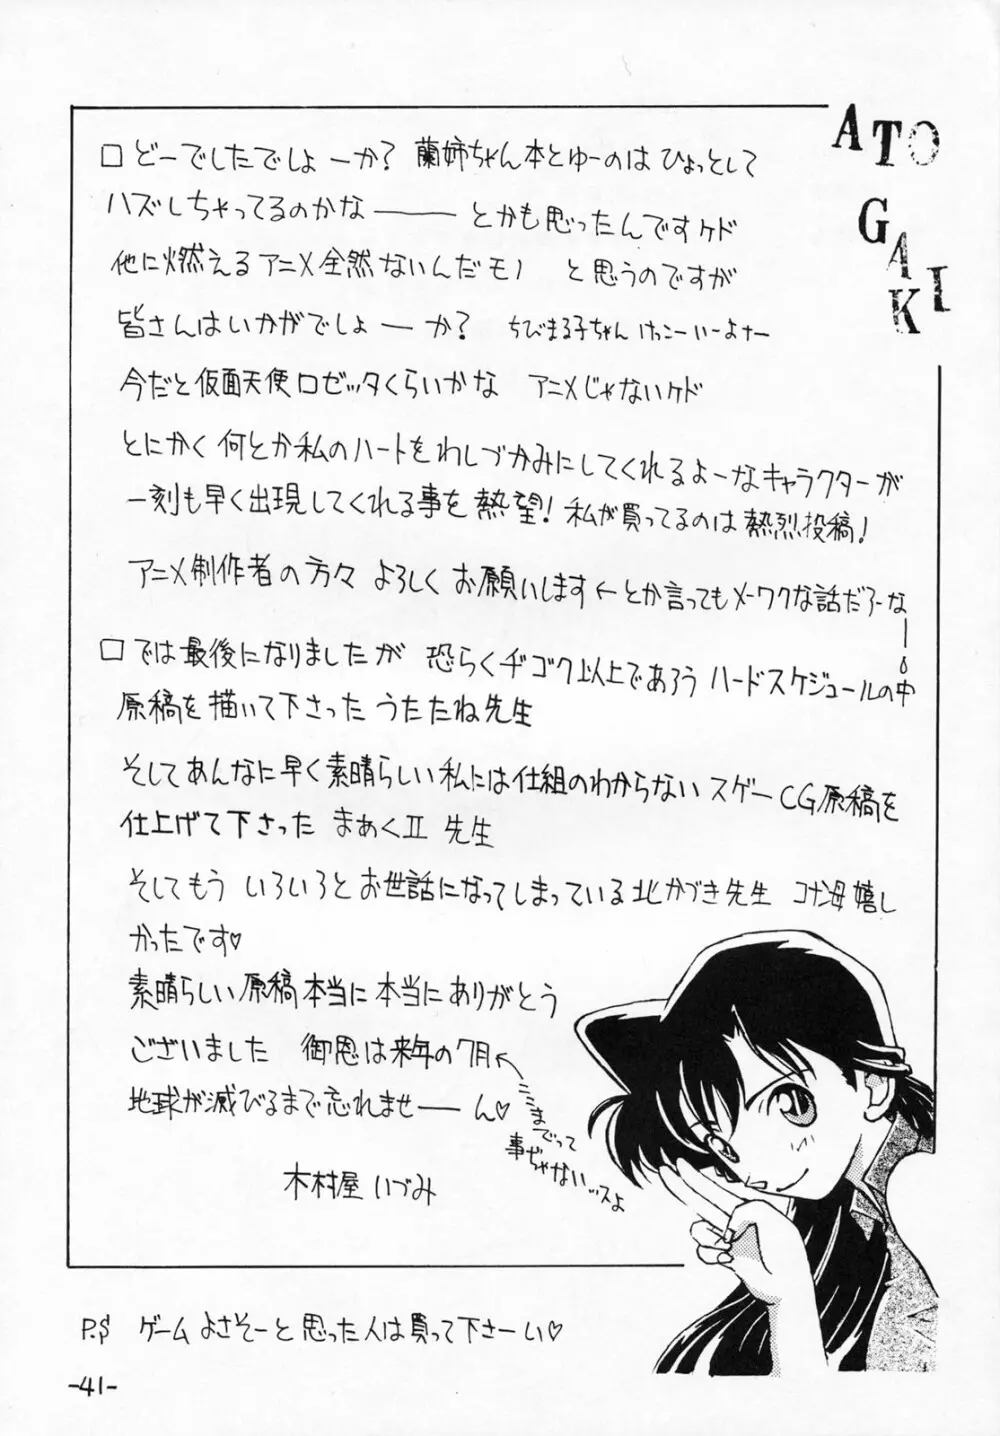 ATO
GAKI
□ どーでしたでしょーか? 蘭姉ちゃん本とゆーのは ひょっとして
ハズしちゃってるのかな ―― とかも思ったんですケド
他に燃えるアニメ全然ないんだモノ と思うのですが
皆さんはいかがでしょーか? ちびまる子ちゃん けっこーいーよなー
今だと仮面天使ロゼッタくらいかな アニメじゃないケド
とにかく 何とか私のハートをわしづかみにしてくれるよーなキャラクターが
一刻も早く出現してくれる事を 熱望! 私が買ってるのは 熱烈投稿!
アニメ制作者の方々 よろしく お願いします ←とか言ってもメーワクな話だろーなー
□ では最後になりましたが 恐らくヂゴク以上であろう ハードスケジュールの中
原稿を描いて下さった うたたね先生
そしてあんなに早く素晴らしい私には仕組のわからない スゲーCG原稿を
仕上げて下さった まぁくII 先生
そしてもう いろいろと お世話になってしまっている 北かづき先生 コナン母嬉し
かったです♡
素晴らしい原稿本当に本当にありがとう
ございました 御恩は来年の7月←
ここまでって
事ぢゃないッスよ
地球が滅びるまで忘れませーん♡
木村屋 いづみ
P.S ゲームよさそーと思った人は買って下さーい♡
-41-